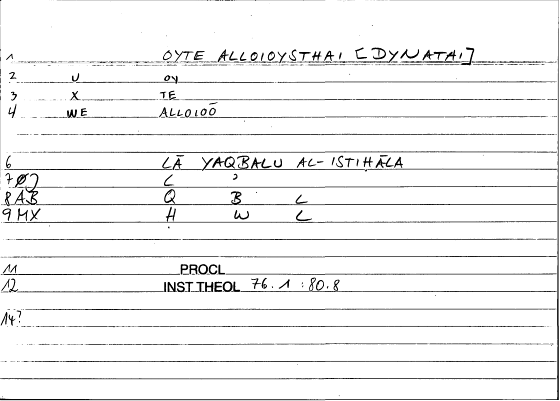 1 OYTE ALLOIOYSTHAI [DYNATAI]
2 U OY
3 X TE
4 WE ALLOIOŌ
6 LĀ YAQBALU AL-ISTIḤĀLA
7 L ʾ
8 AB Q B L
9 MX Ḥ W L
11 PROCL
12 INST THEOL 76.1 : 80.8
14?